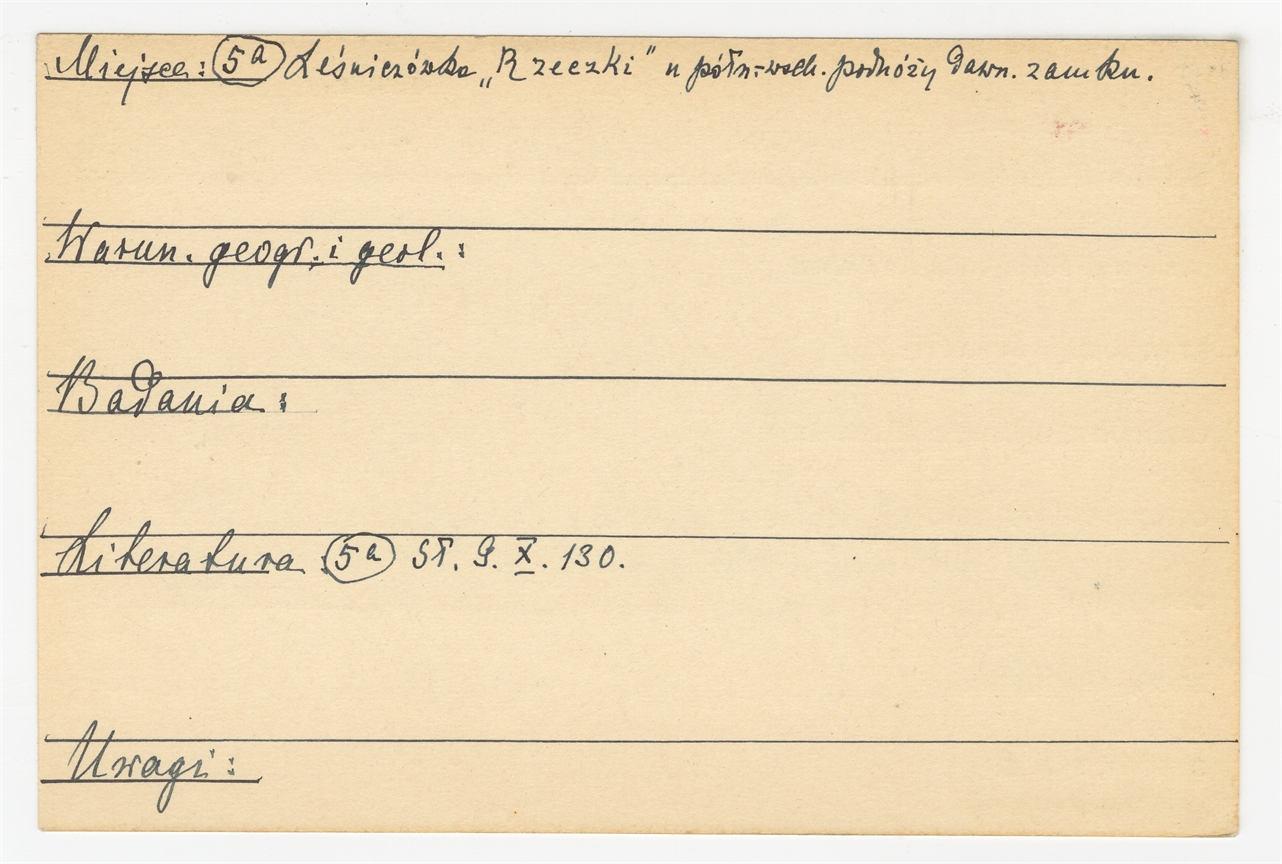 Miejsce: 5a Leśniczówka „Rzeczki” u półn.-wsch. podnóży dawn. zamku.
Warun. geogr. i geol.:
Badania:
Literatura 5a Sł. G. X. 130.
Uwagi: